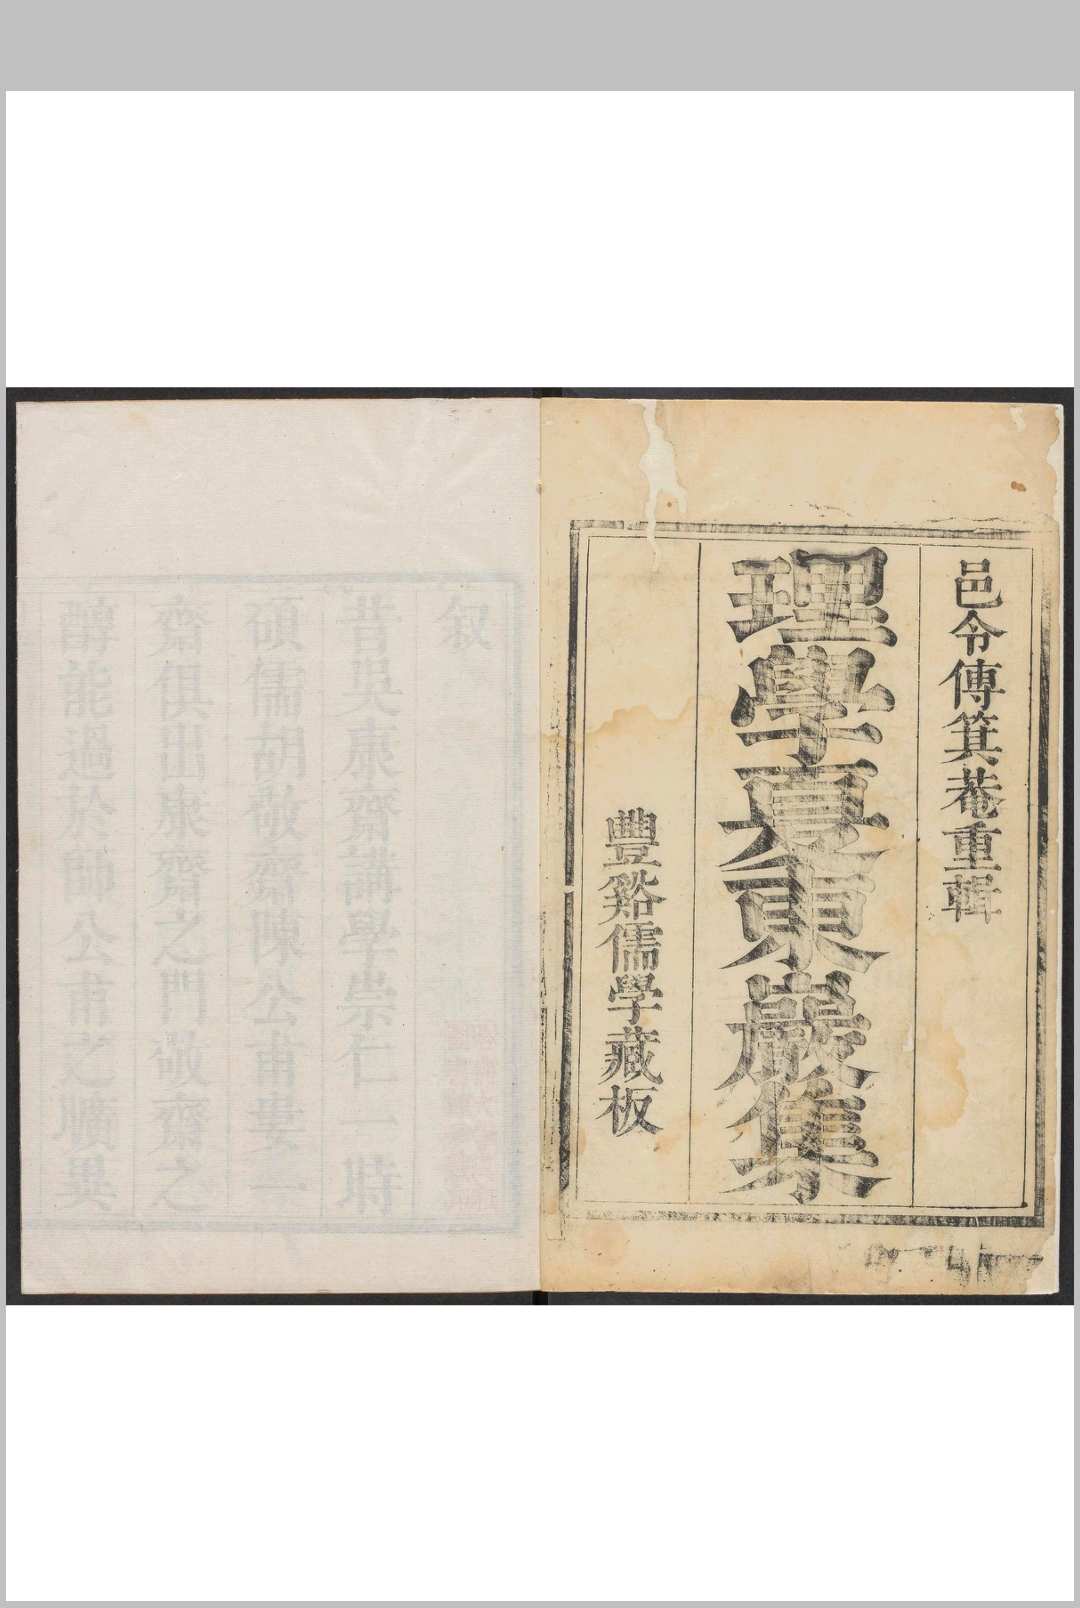 邑令傅箕菴重輯
理學夏東巖集
豐谿儒學藏板
叙
昔吳康齋講學崇仁一時
碩儒胡敬齋陳公甫婁一
齋俱出康齋之門敬齋之